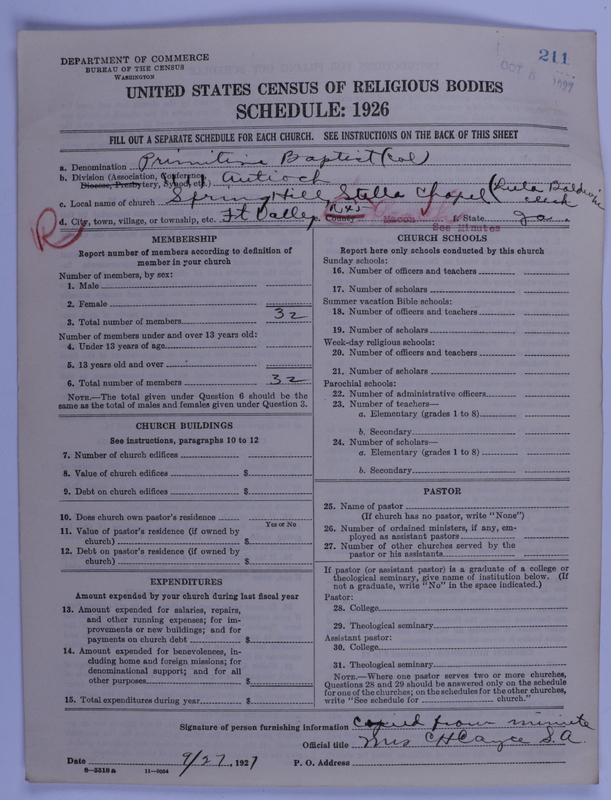 DEPARTMENT OF COMMERCE
BUREAU OF THE CENSUS
WASHINGTON
211
OCT 8 1927
UNITED STATES CENSUS OF RELIGIOUS BODIES
SCHEDULE: 1926
FILL OUT A SEPARATE SCHEDULE FOR EACH CHURCH. SEE INSTRUCTIONS ON THE BACK OF THIS SHEET
a. Denomination Primitive Baptist (Col)
b. Division (Association, Conference, Diocese, Presbytery, Synod, etc.) Antioch
c. Local name of church Spring Hill Stella Chapel (Lula Baldwin clerk
R
d. City, town, village, or township, etc. Ft Valley e. County Macon f. State Ga
See Minutes
MEMBERSHIP
Report number of members according to definition of
member in your church
Number of members, by sex:
1. Male
2. Female
3. Total number of members 32
Number of members under and over 13 years old:
4. Under 13 years of age
5. 13 years old and over
6. Total number of members 32
NOTE.—The total given under Question 6 should be the
same as the total of males and females given under Question 3.
CHURCH BUILDINGS
See instructions, paragraphs 10 to 12
7. Number of church edifices
8. Value of church edifices $
9. Debt on church edifices $
10. Does church own pastor's residence
Yes or No
11. Value of pastor's residence (if owned by
church) $
12. Debt on pastor's residence (if owned by
church) $
EXPENDITURES
Amount expended by your church during last fiscal year
13. Amount expended for salaries, repairs,
and other running expenses; for im-
provements or new buildings; and for
payments on church debt $
14. Amount expended for benevolences, in-
cluding home and foreign missions; for
denominational support; and for all
other purposes $
15. Total expenditures during year $
CHURCH SCHOOLS
Report here only schools conducted by this church
Sunday schools:
16. Number of officers and teachers
17. Number of scholars
Summer vacation Bible schools:
18. Number of officers and teachers
19. Number of scholars
Week-day religious schools:
20. Number of officers and teachers
21. Number of scholars
Parochial schools:
22. Number of administrative officers
23. Number of teachers—
a. Elementary (grades 1 to 8)
b. Secondary
24. Number of scholars—
a. Elementary (grades 1 to 8)
b. Secondary
PASTOR
25. Name of pastor
(If church has no pastor, write "None")
26. Number of ordained ministers, if any, em-
ployed as assistant pastors
27. Number of other churches served by the
pastor or his assistants
If pastor (or assistant pastor) is a graduate of a college or
theological seminary, give name of institution below. (If
not a graduate, write "No" in the space indicated.)
Pastor:
28. College
29. Theological seminary
Assistant pastor:
30. College
31. Theological seminary
NOTE.—Where one pastor serves two or more churches,
Questions 28 and 29 should be answered only on the schedule
for one of the churches; on the schedules for the other churches,
write "See schedule for church."
Signature of person furnishing information Copied from minute
Official title Mrs C H Cayce S.A.
Date 9/27, 1927 P. O. Address
8—5518a 11—9054